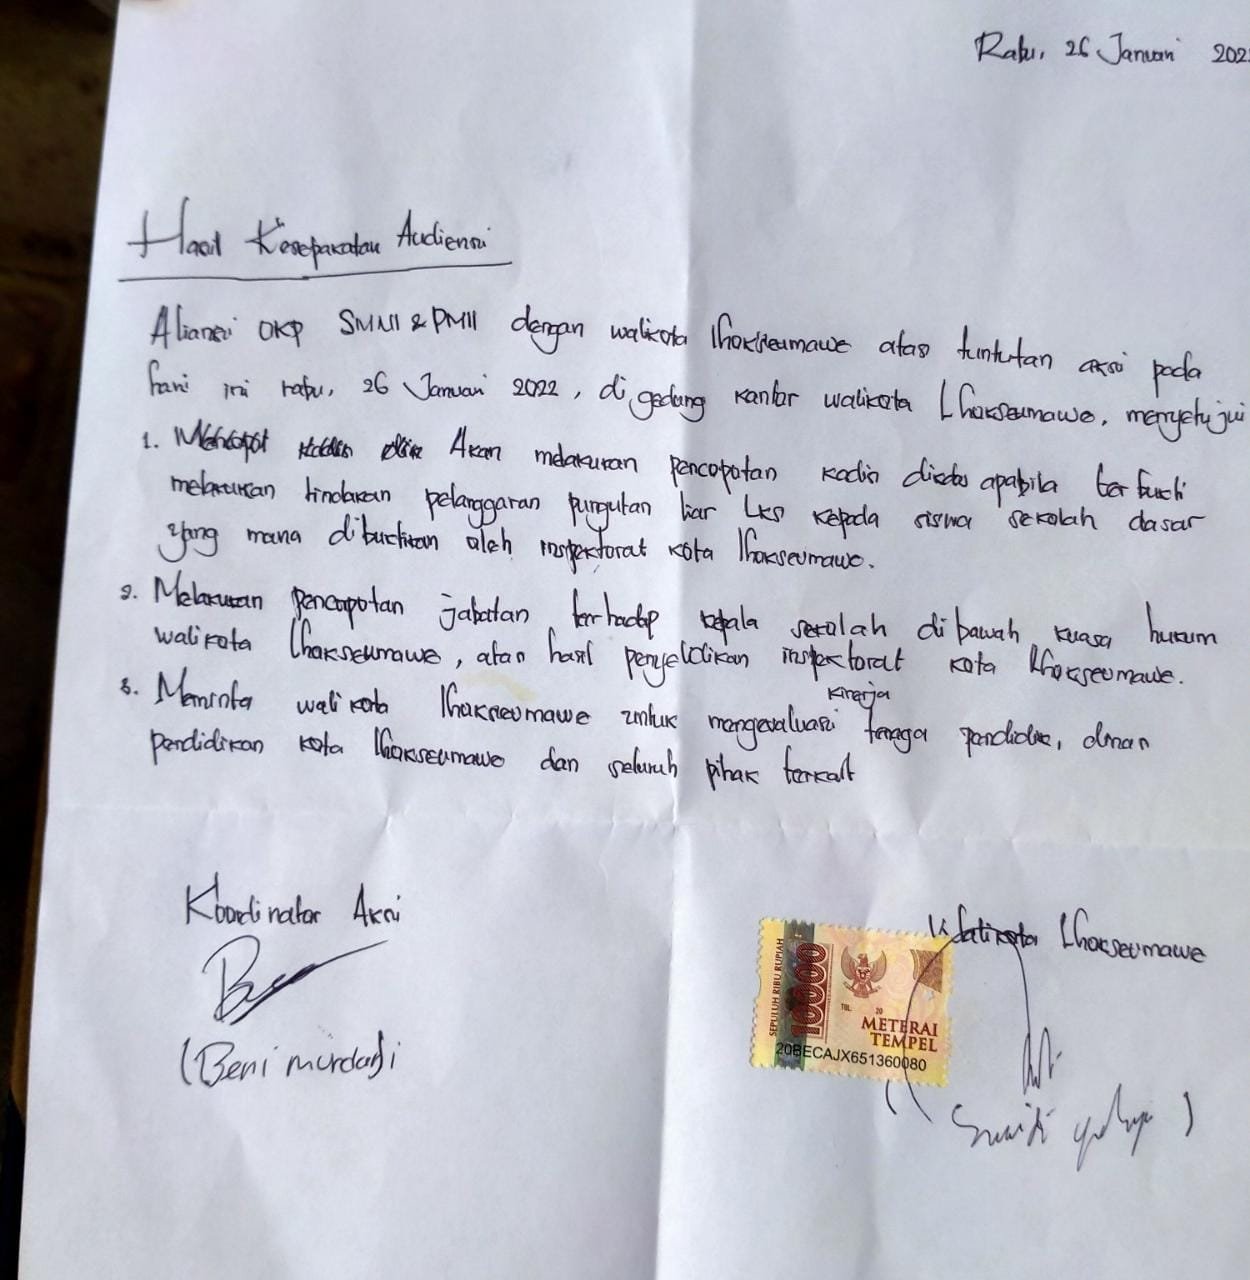 Rabu, 26 Januari 202
Hasil Kesepakatan Audiensi
Aliansi OKP SMNI & PMII dengan walikota lhokseumawe atas tuntutan aksi pada
hari ini rabu, 26 Januari 2022, di gedung kantor walikota Lhokseumawe, menyetujui
1. Mencopot kadis Akan melakukan pencopotan kadis dikdas apabila terbukti
melakukan tindakan pelanggaran pungutan liar LKS kepada siswa sekolah dasar
yang mana dibuktikan oleh inspektorat kota lhokseumawe.
2. Melakukan pencopotan jabatan terhadap kepala sekolah di bawah kuasa hukum
walikota lhokseumawe, atas hasil penyelidikan inspektorat kota lhokseumawe.
3. Meminta walikota lhokseumawe untuk mengevaluasi kinerja tenaga pendidik, dinas
pendidikan kota lhokseumawe dan seluruh pihak terkait
Koordinator Aksi
Walikota Lhokseumawe
SEPULUH RIBU RUPIAH
10000
TGL. 20
METERAI
TEMPEL
20BECAJX651360080
(Beni murdadi
(Suaidi yahya)